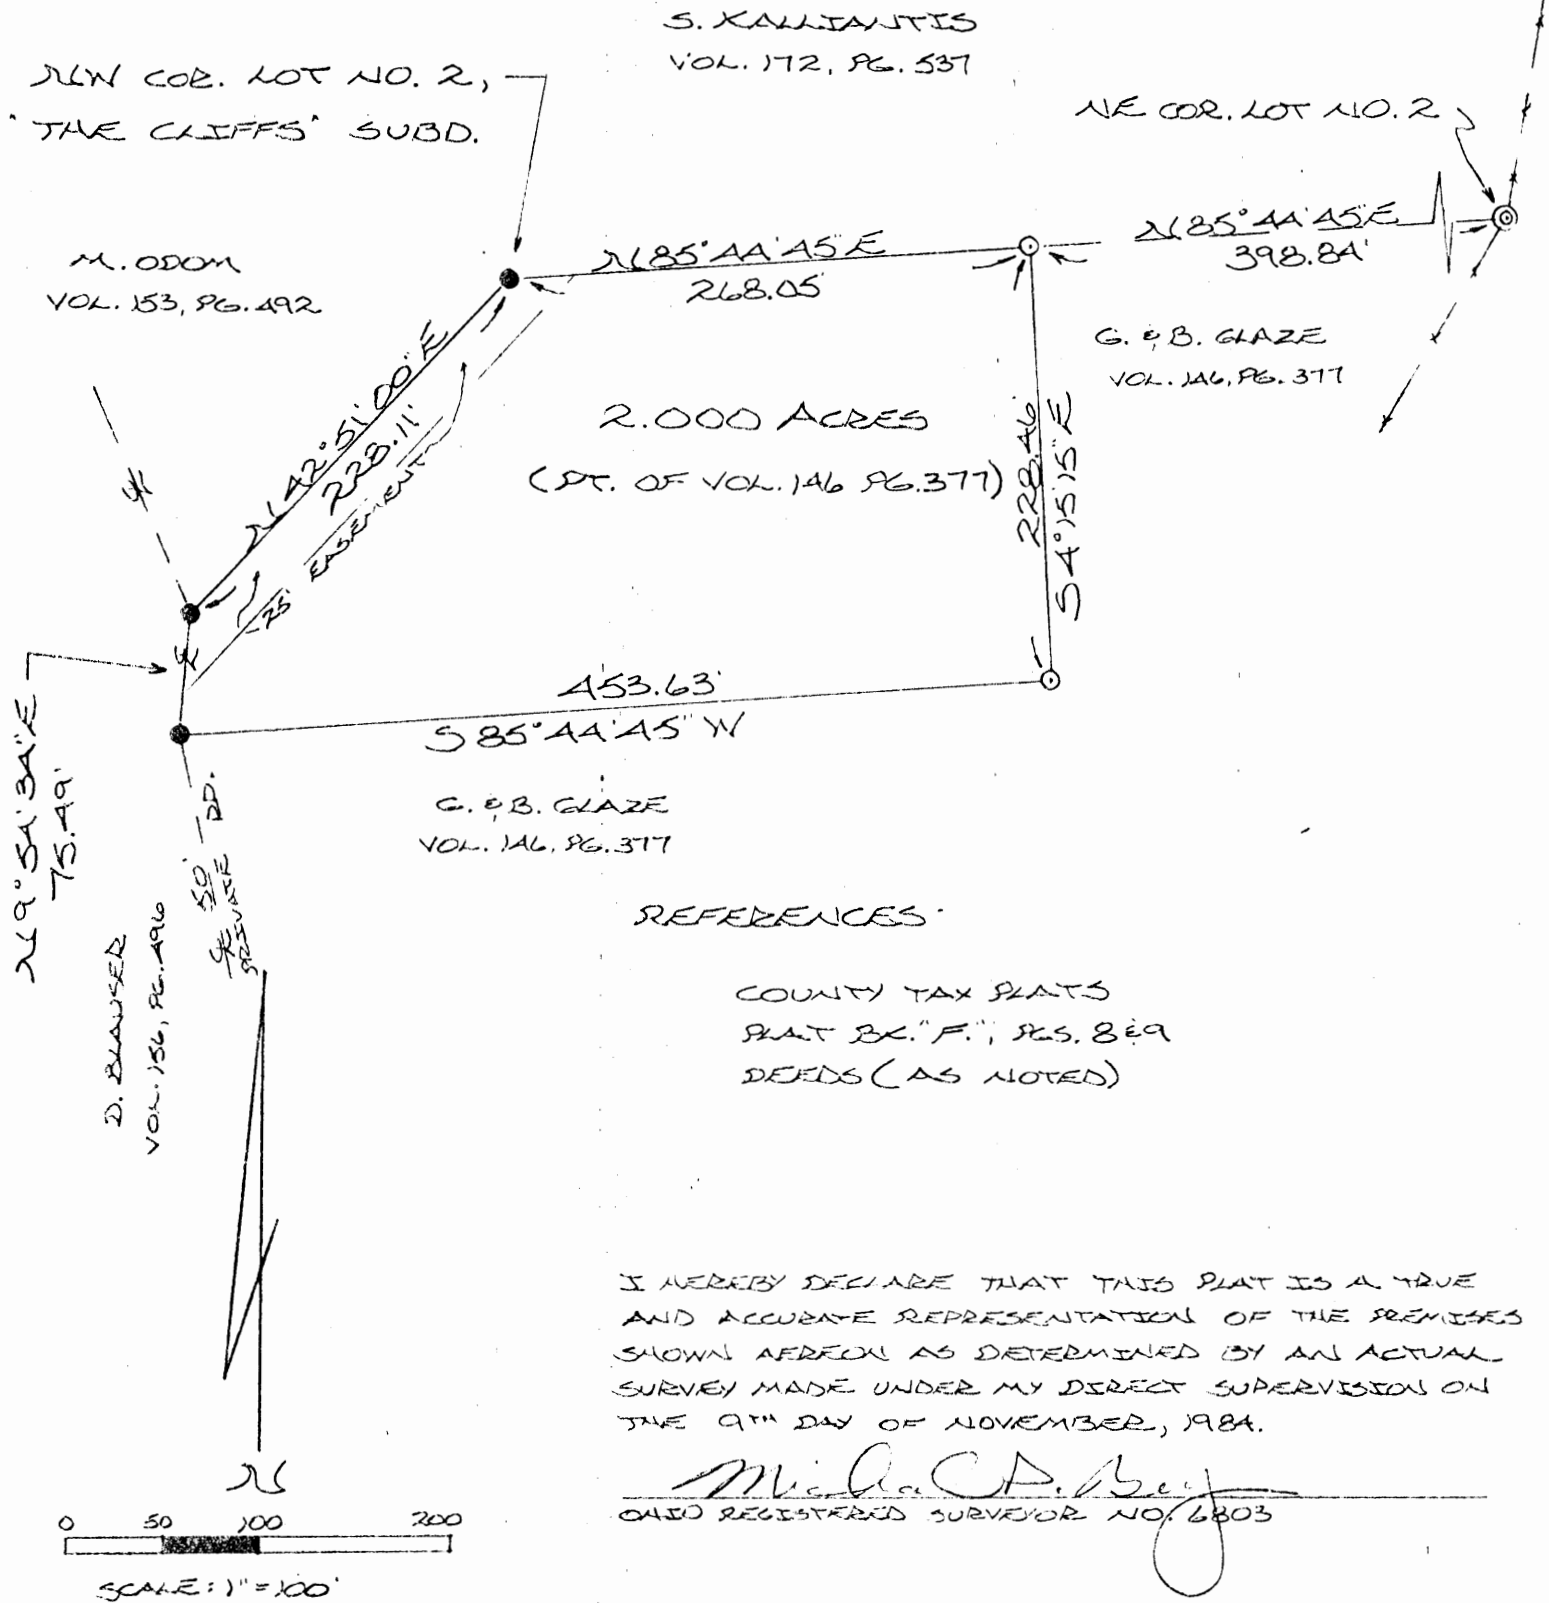 S. KALLIANTIS
VOL. 172, PG. 537
NW COR. LOT NO. 2,
"THE CLIFFS" SUBD.
NE COR. LOT NO. 2
M. ODOM
VOL. 153, PG. 492
N 85° 44' 45" E
268.05'
N 85° 44' 45" E
398.84'
G. & B. GLAZE
VOL. 146, PG. 377
N 42° 51' 00" E
228.11'
25' EASEMENT
2.000 ACRES
(PT. OF VOL. 146 PG. 377)
228.46'
S 4° 15' 15" E
℄
℄
453.63'
S 85° 44' 45" W
N 9° 54' 34" E
75.49'
G. & B. GLAZE
VOL. 146, PG. 377
℄ 50'
PRIVATE RD.
D. BLAUSER
VOL. 156, PG. 496
REFERENCES:
COUNTY TAX PLATS
PLAT BK. "F", PGS. 8 & 9
DEEDS (AS NOTED)
I HEREBY DECLARE THAT THIS PLAT IS A TRUE
AND ACCURATE REPRESENTATION OF THE PREMISES
SHOWN HEREON AS DETERMINED BY AN ACTUAL
SURVEY MADE UNDER MY DIRECT SUPERVISION ON
THE 9TH DAY OF NOVEMBER, 1984.
OHIO REGISTERED SURVEYOR NO. 6803
N
0 50 100 200
SCALE: 1" = 100'